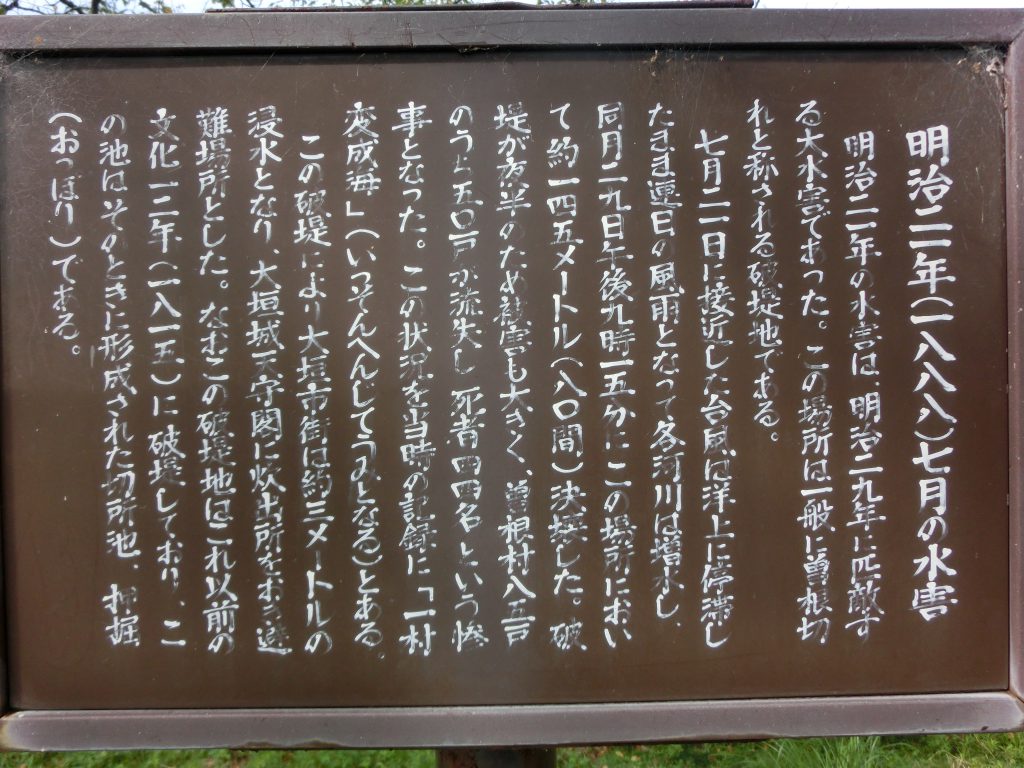 明治二一年(一八八八)七月の水害
明治二一年の水害は、明治二九年に匹敵す
る大水害であった。この場所は一般に曽根切
れと称される破堤地である。
七月二一日に接近した台風は洋上に停滞し
たまま連日の風雨となって各河川は増水し、
同月二九日午後九時一五分にこの場所におい
て約一四五メートル(八〇間)決壊した。破
堤が夜半のため被害も大きく、曽根村八五戸
のうち五〇戸が流失し死者四四名という惨
事となった。この状況を当時の記録に「一村
変成海」(いっそんへんじてうみとなる)とある。
この破堤により大垣市街は約三メートルの
浸水となり、大垣城天守閣に炊出所をおき避
難場所とした。なおこの破堤地はこれ以前の
文化一二年(一八一五)に破堤しており、こ
の池はそのときに形成された切所池、押堀
(おっぽり)である。